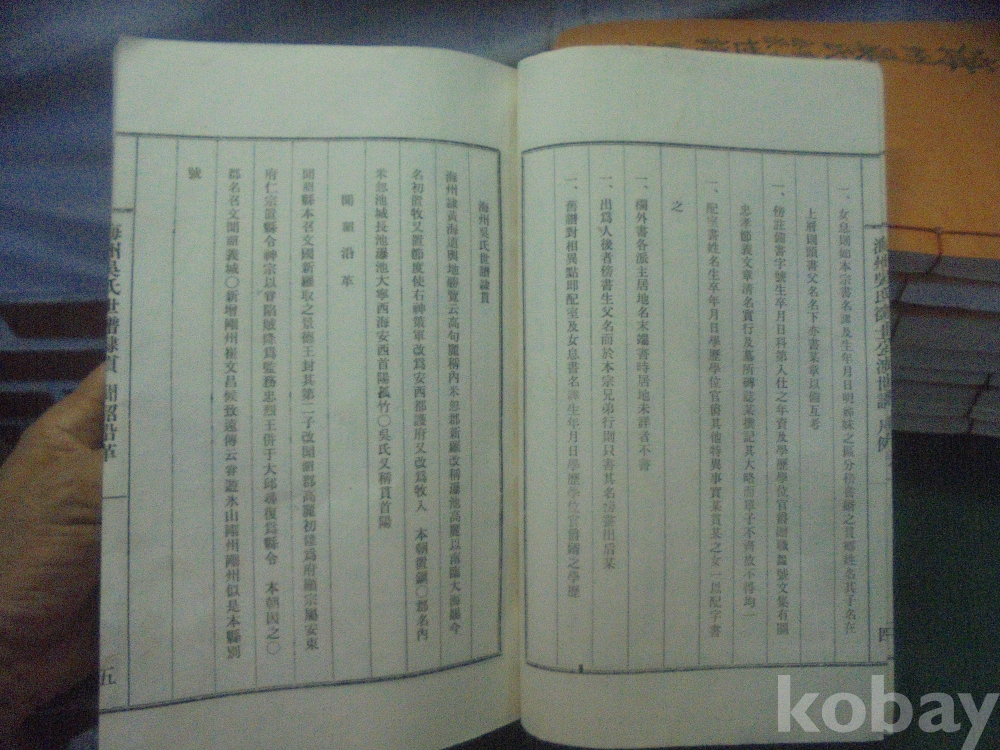 一、女息則本宗書名諱及生年月日明姉妹之區分壻書籍之貫鄕姓名其子名在
上層國頭書父名名下亦書某章以備互考
一、傍註備書字號生卒年月日科第入仕之年資及學歷學位官爵贈職諡號文集有關
忠孝節義文章清名實行及墓所碑誌某撰記其大略而單子不齊故不得均
一、配字書姓名生卒年月日學歷學位官爵其他特異事實某貫某之女一以配字書
之
一、欄外書各派主居地名末端書時居地未詳者不書
一、出爲人後者傍書生父名而於本宗兄弟行則只書其名傍書出后某
一、舊譜對相異點卽配室及女息書名諱生年月日學歷學位官爵婿之學歷
四
海州吳氏世譜鄕貫
海州隸黃海道輿地勝覽云高句麗稱內米忽郡新羅改稱瀑池高麗以南臨大海賜今
名初置牧又置節度使右神策軍改爲安西都護府又改爲牧入 本朝置鎭〇郡名內
米忽池城長池瀑池大寧西海安西首陽孤竹〇吳氏又稱貫首陽
聞韶沿革
聞韶縣本召文國新羅取之景德王封其第二子改聞韶郡高麗初陞爲府顯宗屬安東
府仁宗置縣令神宗以眚陷賊降爲監務忠烈王倂于大邱尋復爲縣令 本朝因之〇
郡名召文聞韶義城〇新增剛州崔文昌候致遠傳云嘗遊氷山剛州剛州似是本縣別
號
海州吳氏世譜 貫 聞韶沿革
五
kobay